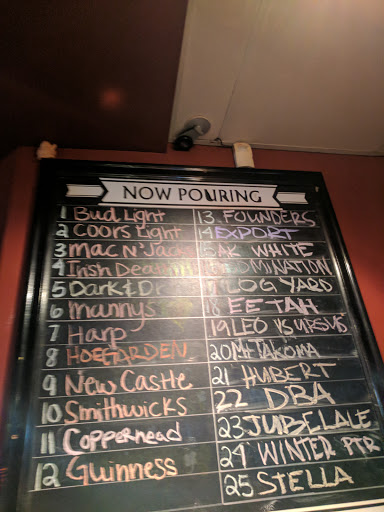 NOW POURING
1 Bud Light
2 Coors Light
3 Mac N' Jack
4 Irish Death
5 Dark & Dr
6 Mannys
7 Harp
8 HOEGARDEN
9 New Castle
10 Smithwicks
11 Copperhead
12 Guinness
13. FOUNDERS
14 EXPORT
15 AK WHITE
DOMINATION
LOG YARD
18 EETAH
19 LEO VS URSUS
20 Mt TAKOMA
21 HUBERT
22 DBA
23 JUBELALE
24 WINTER PTR
25 STELLA